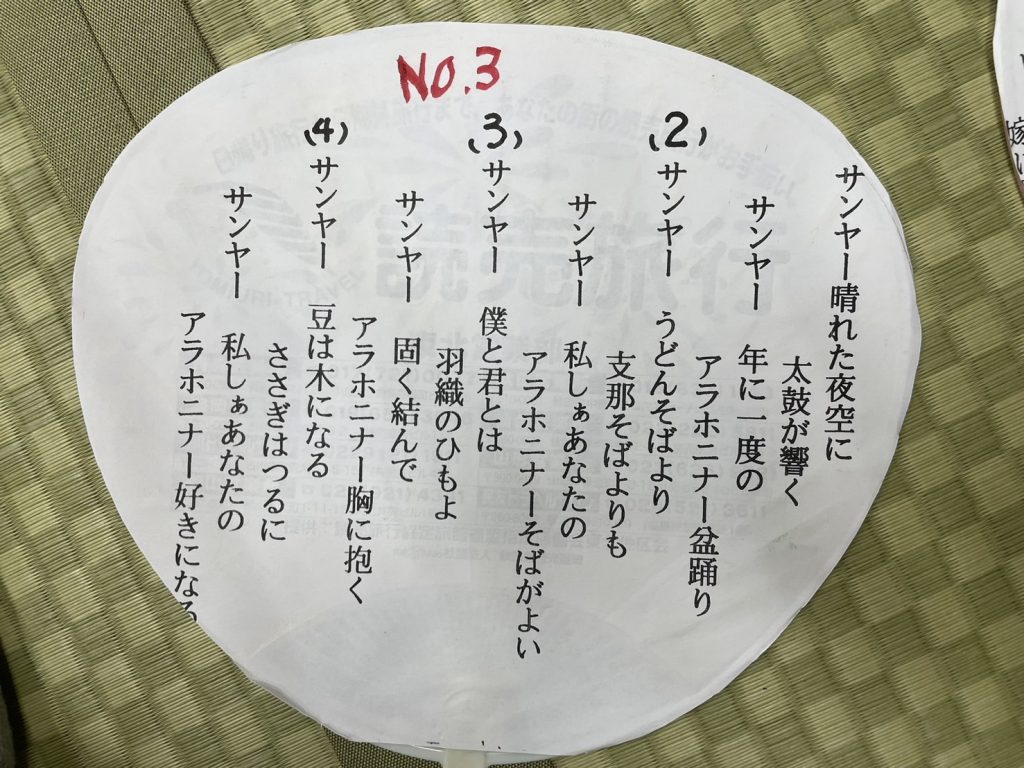 NO.3
サンヤー晴れた夜空に
太鼓が響く
サンヤー 年に一度の
アラホニナー盆踊り
(2)
サンヤー うどんそばより
支那そばよりも
サンヤー 私しぁあなたの
アラホニナーそばがよい
(3)
サンヤー 僕と君とは
羽織のひもよ
サンヤー 固く結んで
アラホニナー胸に抱く
(4)
サンヤー 豆は木になる
ささぎはつるに
サンヤー 私しぁあなたの
アラホニナー好きになる
読売旅行
YOMIURI TRAVEL
嫁に